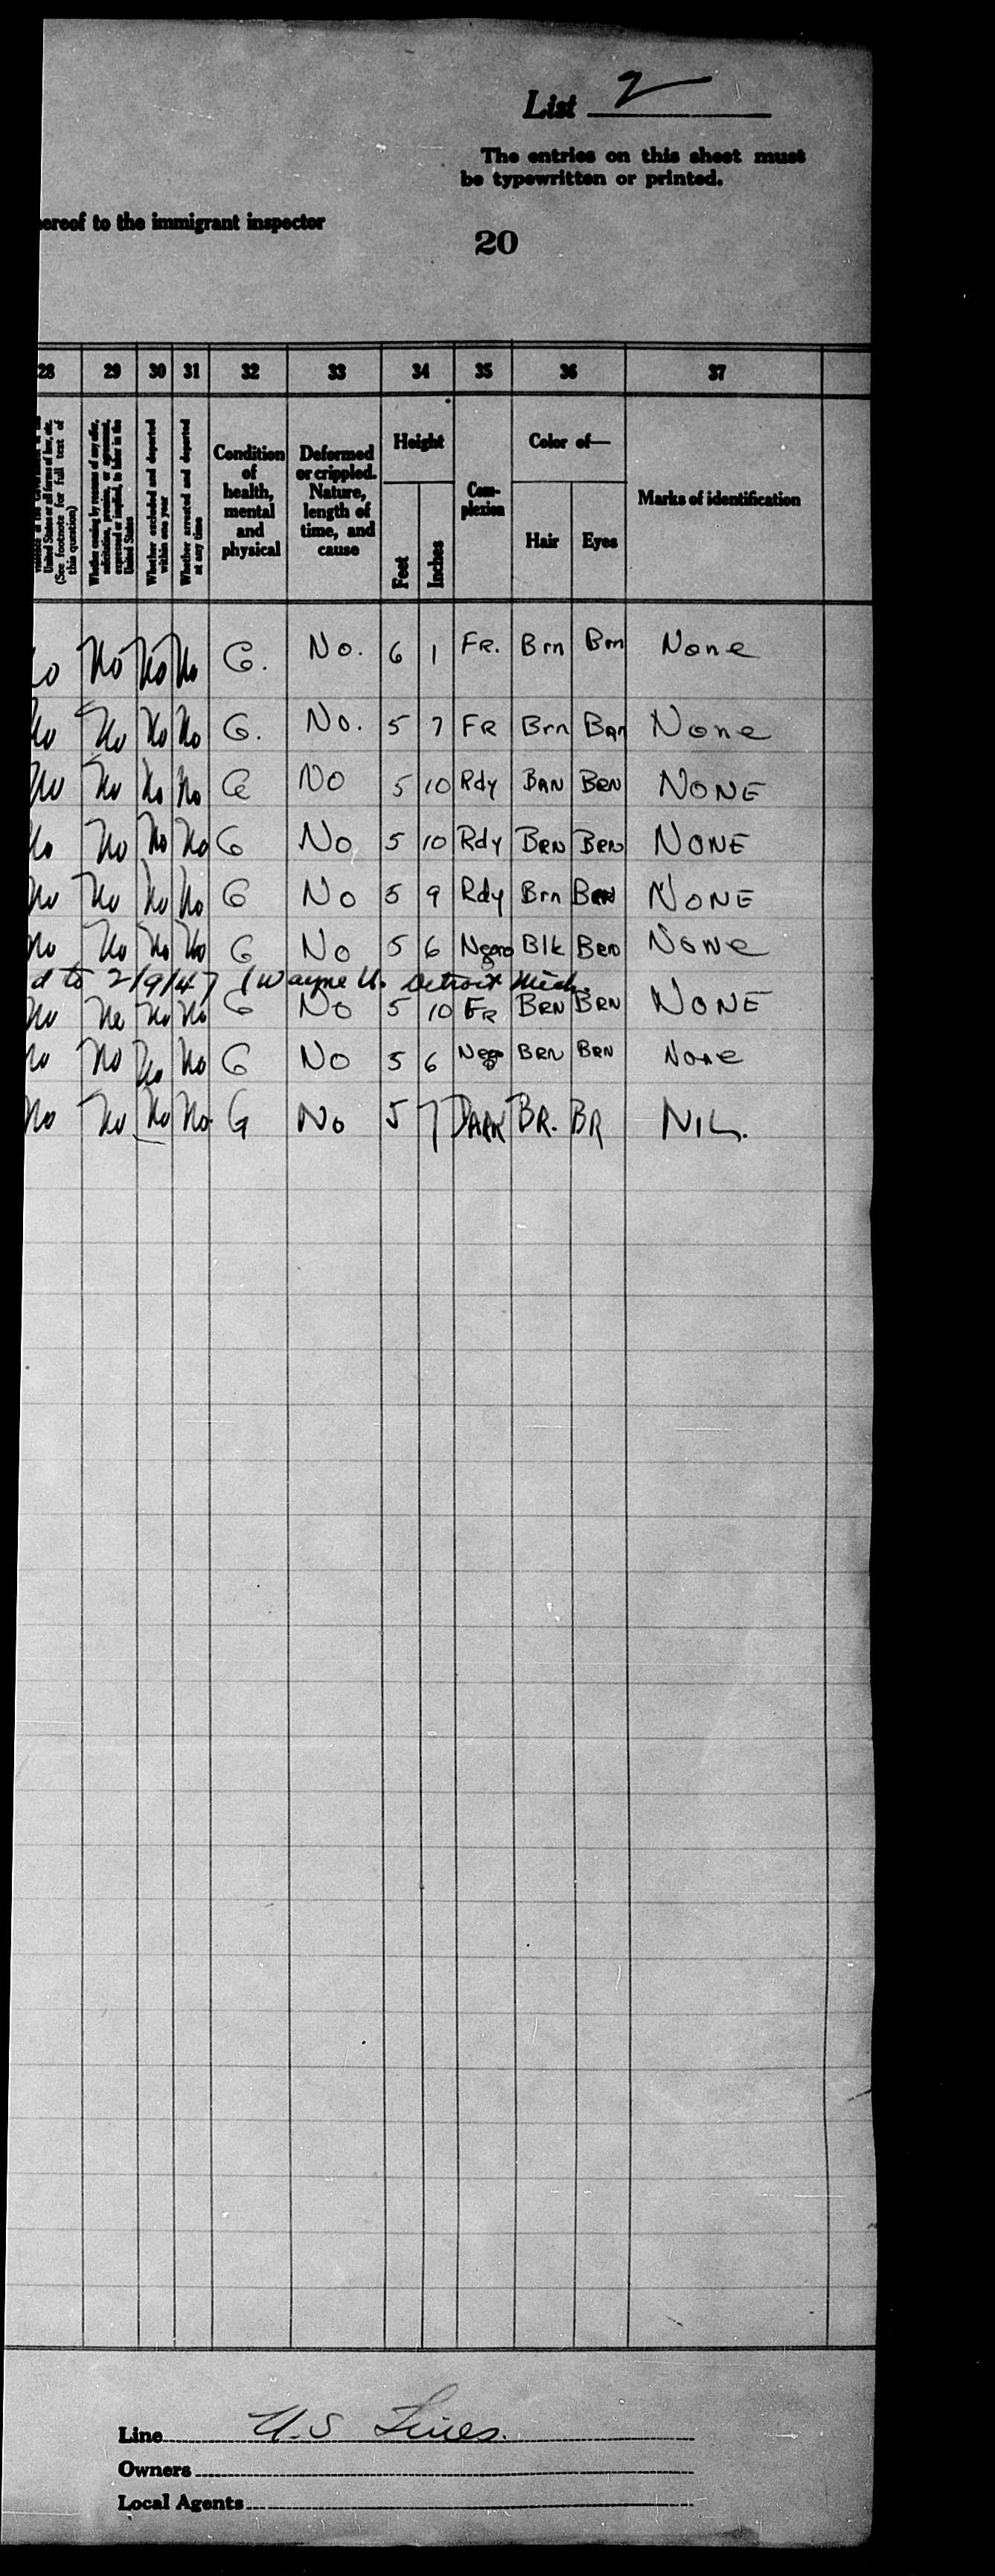 List 2
The entries on this sheet must
be typewritten or printed.
ereof to the immigrant inspector
20
28 29 30 31 32 33 34 35 36 37
United States or all forms of law, etc.
(See footnote for full text of
this question)
Whether coming by reasons of any offer,
solicitation, promise, or agreement,
expressed or implied, to labor in the
United States
Whether excluded and deported
within one year
Whether arrested and deported
at any time
Condition
of
health,
mental
and
physical
Deformed
or crippled.
Nature,
length of
time, and
cause
Height
Feet
Inches
Com-
plexion
Color of—
Hair
Eyes
Marks of identification
No No No G. No. 6 1 FR. Brn Brn None
No No No No G. No. 5 7 FR Brn Brn None
No No No No G No 5 10 Rdy BRN BRN NONE
No No No No G No 5 10 Rdy BRN BRN NONE
No No No No G No 5 9 Rdy Brn Brn NONE
No No No No G No 5 6 Negro Blk Brn None
d to 2/9/47 (Wayne U. Detroit Mich.
No No No No G No 5 10 FR BRN BRN NONE
No No No No G No 5 6 Nego BRN BRN None
No No No No. G No 5 7 DARK BR. BR NIL.
Line U.S Lines.
Owners
Local Agents